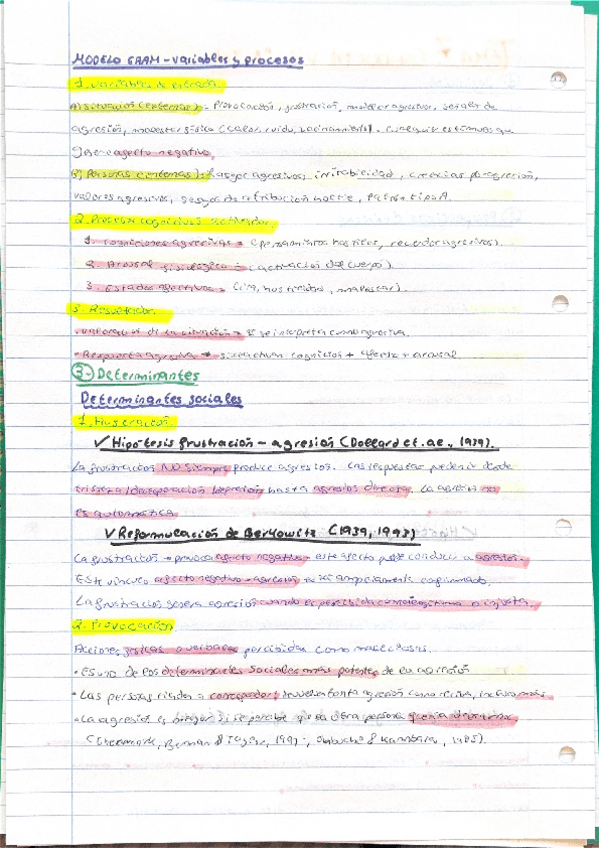 MODELO GAAM - variables y procesos
1. Variables de entrada
A) Situación (externas) - Provocación, frustración, modelos agresivos, señales de
agresión, malestar físico (calor, ruido, hacinamiento). Cualquier estímulo que
genere afecto negativo.
B) Personas (internas): Rasgos agresivos, irritabilidad, creencias pro agresión,
valores agresivos, sesgo de atribución hostil, Patrón tipo A.
2. Procesos cognitivos
1. Cogniciones agresivas = (pensamientos hostiles, recuerdos agresivos).
2. Arousal fisiológico = (activación del cuerpo).
3. Estados afectivos = (ira, hostilidad, malestar).
3. Resultados
· Valoración de la situación → si se interpreta como agresiva.
· Respuesta agresiva → si se activan cognición + afecto + arousal
3- Determinantes
Determinantes sociales
1. Frustración
✓ Hipótesis frustración - agresión (Dollard et. al., 1939).
La frustración NO siempre produce agresión. Las respuestas pueden ir desde
tristeza / desesperación / depresión hasta agresión directa. La agresión no
es automática.
✓ Reformulación de Berkowitz (1989, 1993)
La frustración → provoca afecto negativo → este afecto puede conducir a agresión.
Este vínculo afecto negativo - agresión ampliamente confirmado.
La frustración genera agresión cuando es percibida como ilegítima o injusta.
2. Provocación
Acciones físicas o verbales percibidas como maliciosas.
· Es uno de los determinantes sociales más potentes de la agresión
· Las personas tienden a corresponder: devuelven tanta agresión como reciben, incluso más.
· La agresión es mayor si se percibe que la otra persona quería
Berman & Taylor, & Kambara, 1985).